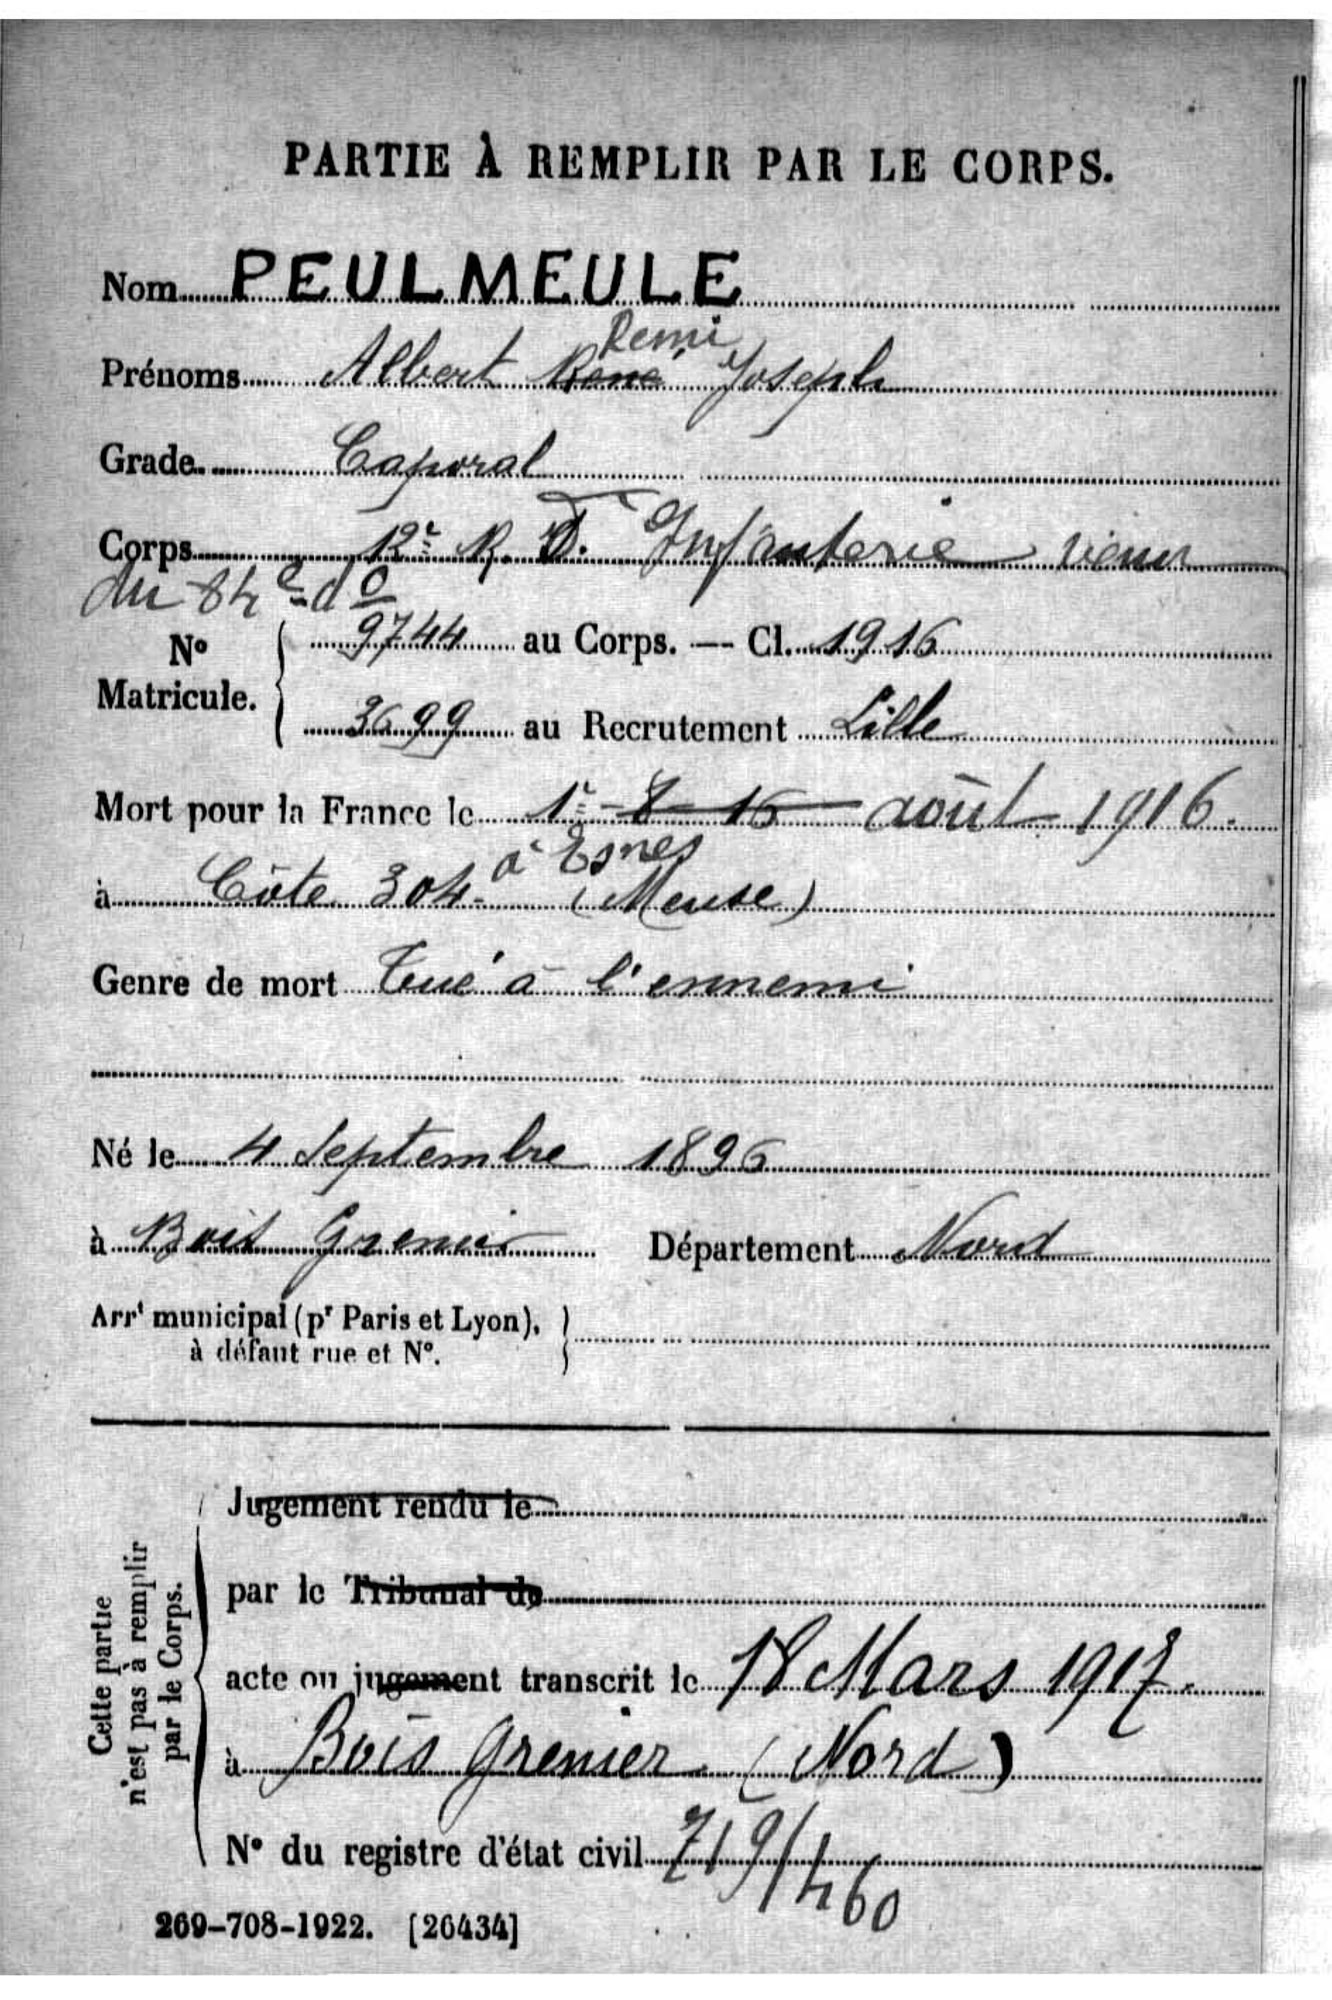 PARTIE À REMPLIR PAR LE CORPS.
Nom PEULMEULE
Remi
Prénoms Albert René Joseph
Grade Caporal
Corps 12e R. D'Infanterie venu
du 84e do
No Matricule. 9744 au Corps. — Cl. 1916
3699 au Recrutement Lille
Mort pour la France le 1r - 8 - 16 août 1916.
à Esnes
à Côte 304 - (Meuse)
Genre de mort Tué à l'ennemi
Né le 4 Septembre 1896
à Bois Grenier Département Nord
Arrt municipal (pr Paris et Lyon),
à défaut rue et No.
Cette partie
n'est pas à remplir
par le Corps.
Jugement rendu le
par le Tribunal de
acte ou jugement transcrit le 18 Mars 1917.
à Bois Grenier (Nord)
No du registre d'état civil 719/460
269-708-1922. [26434]